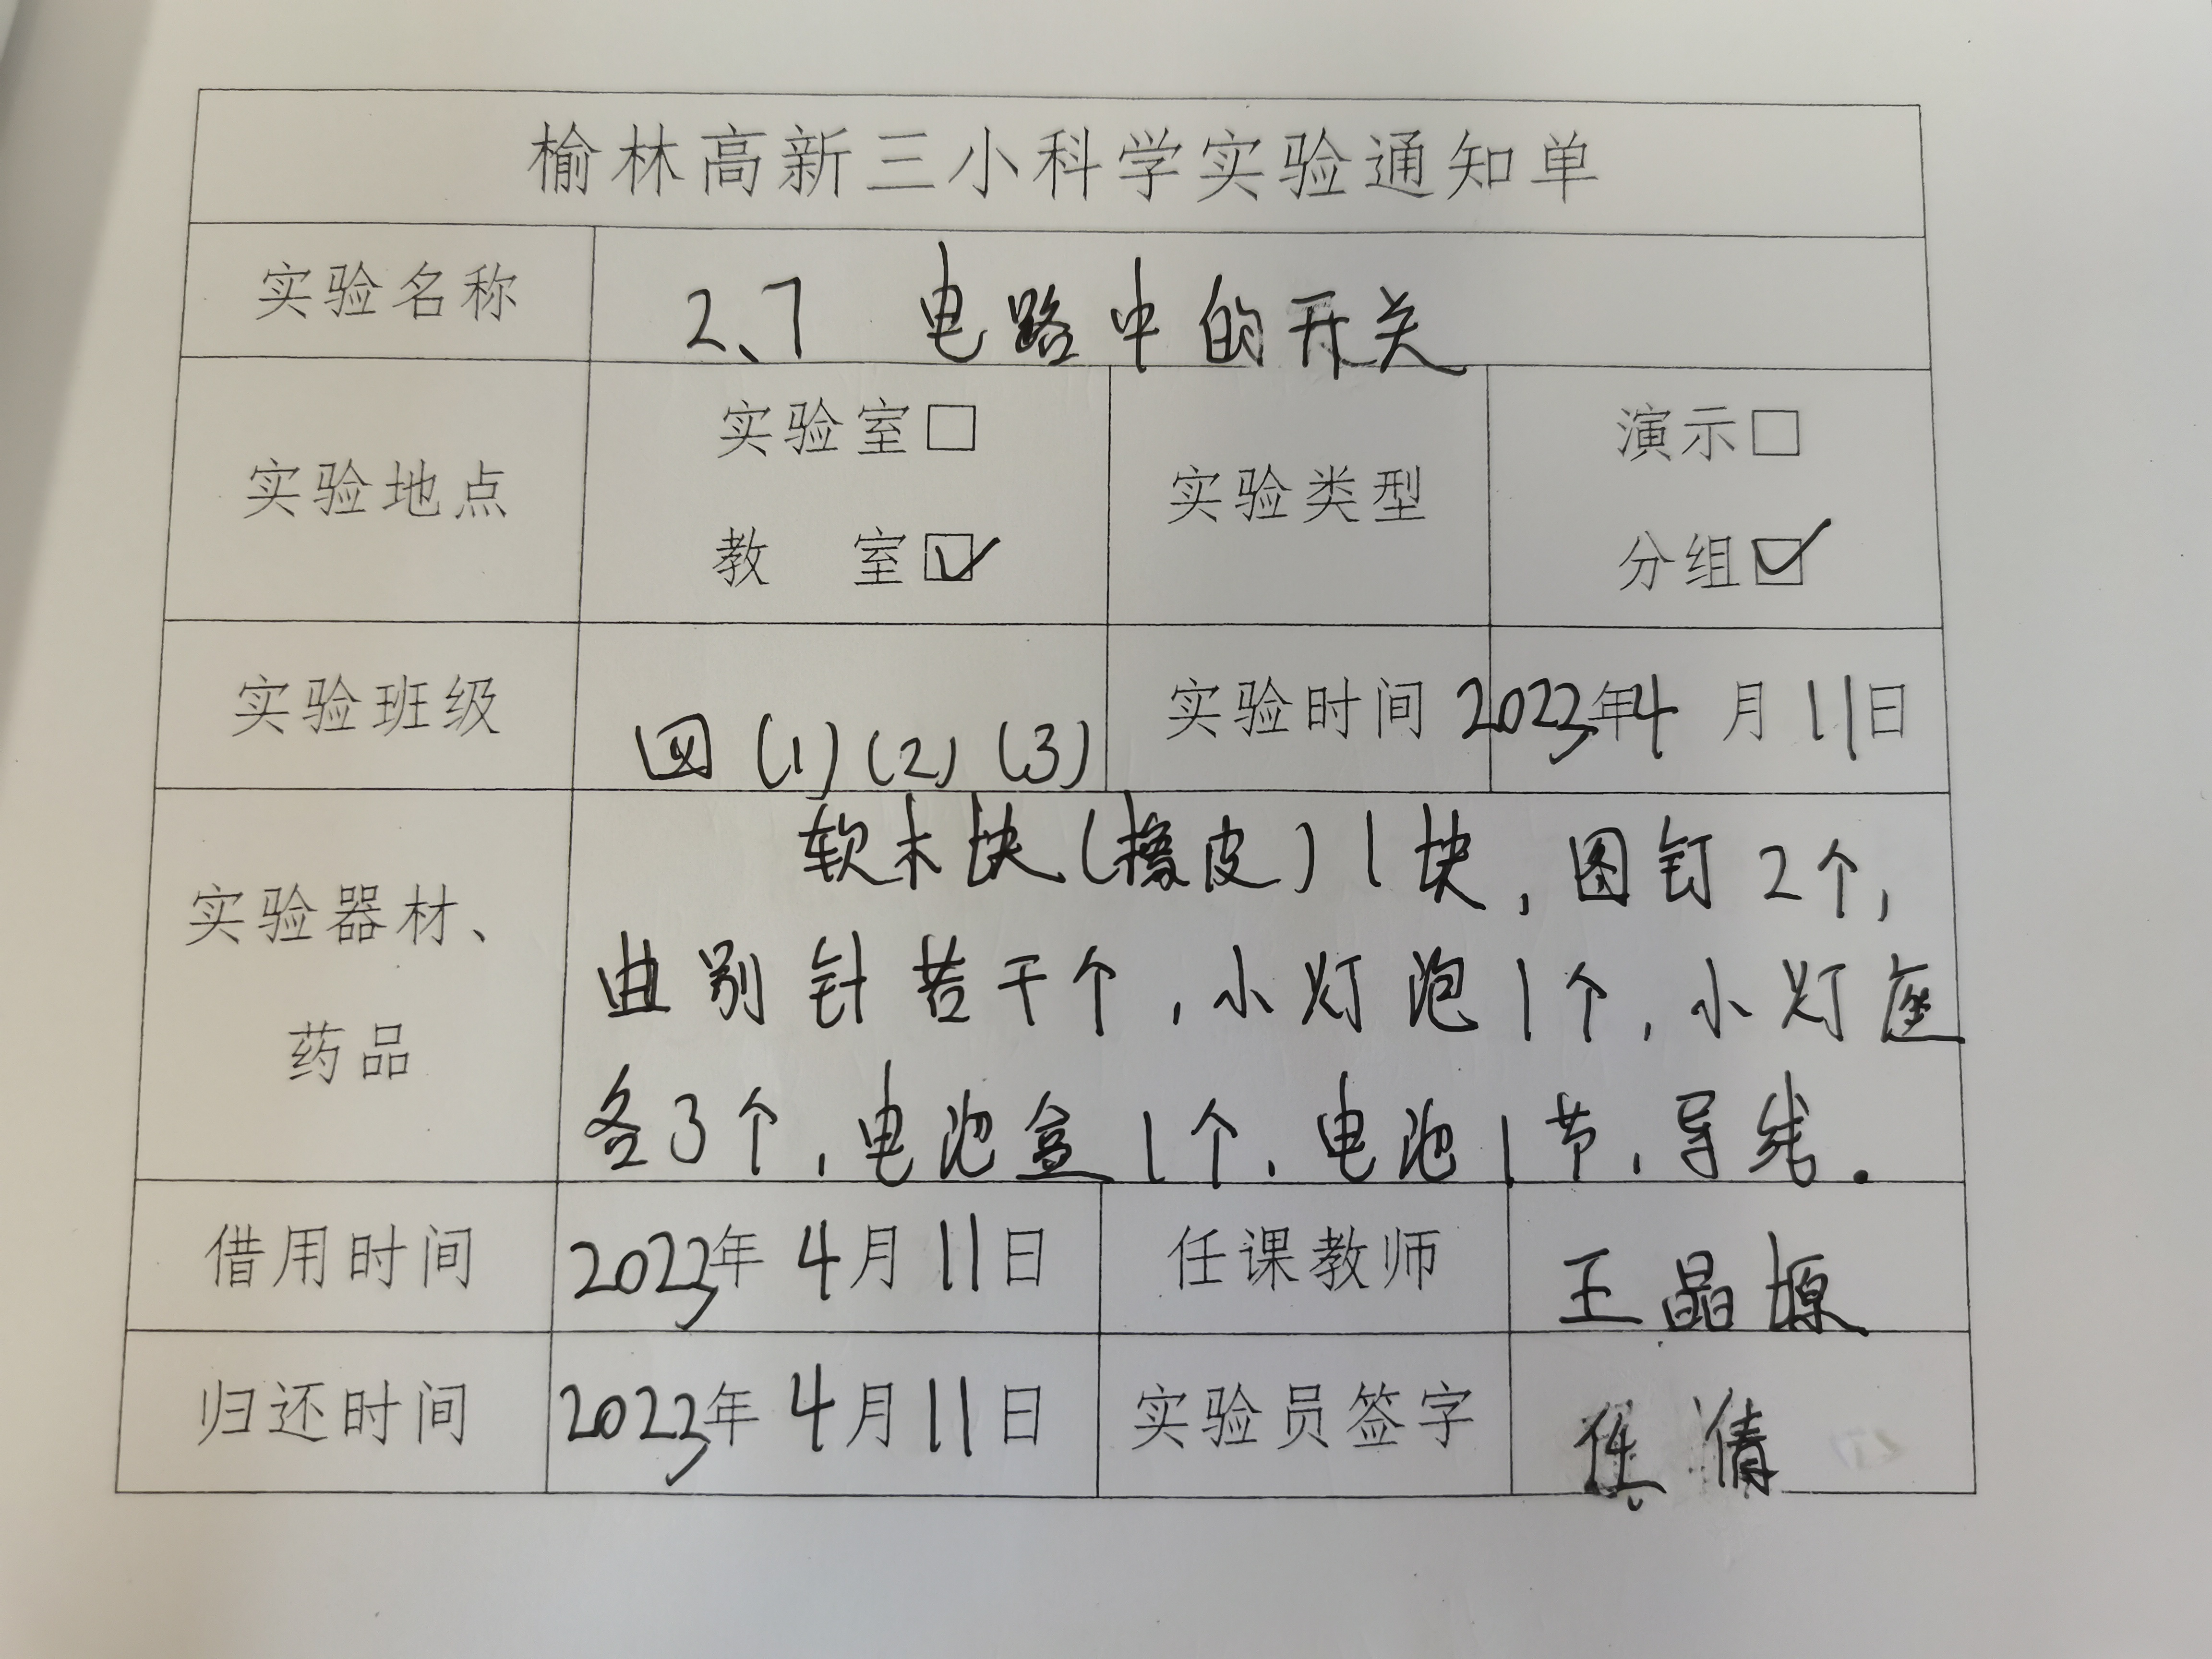 榆林高新三小科学实验通知单
实验名称 2、7 电路中的开关
实验地点
实验室□
教 室☑
实验类型
演示□
分组☑
实验班级 四(1)(2)(3)
实验时间 2023年4月11日
实验器材、
药品
软木块(橡皮)1块,图钉2个,
曲别针若干个,小灯泡1个,小灯座
各3个,电池盒1个,电池1节,导线.
借用时间 2023年4月11日
任课教师 王晶塬
归还时间 2023年4月11日
实验员签字 倩